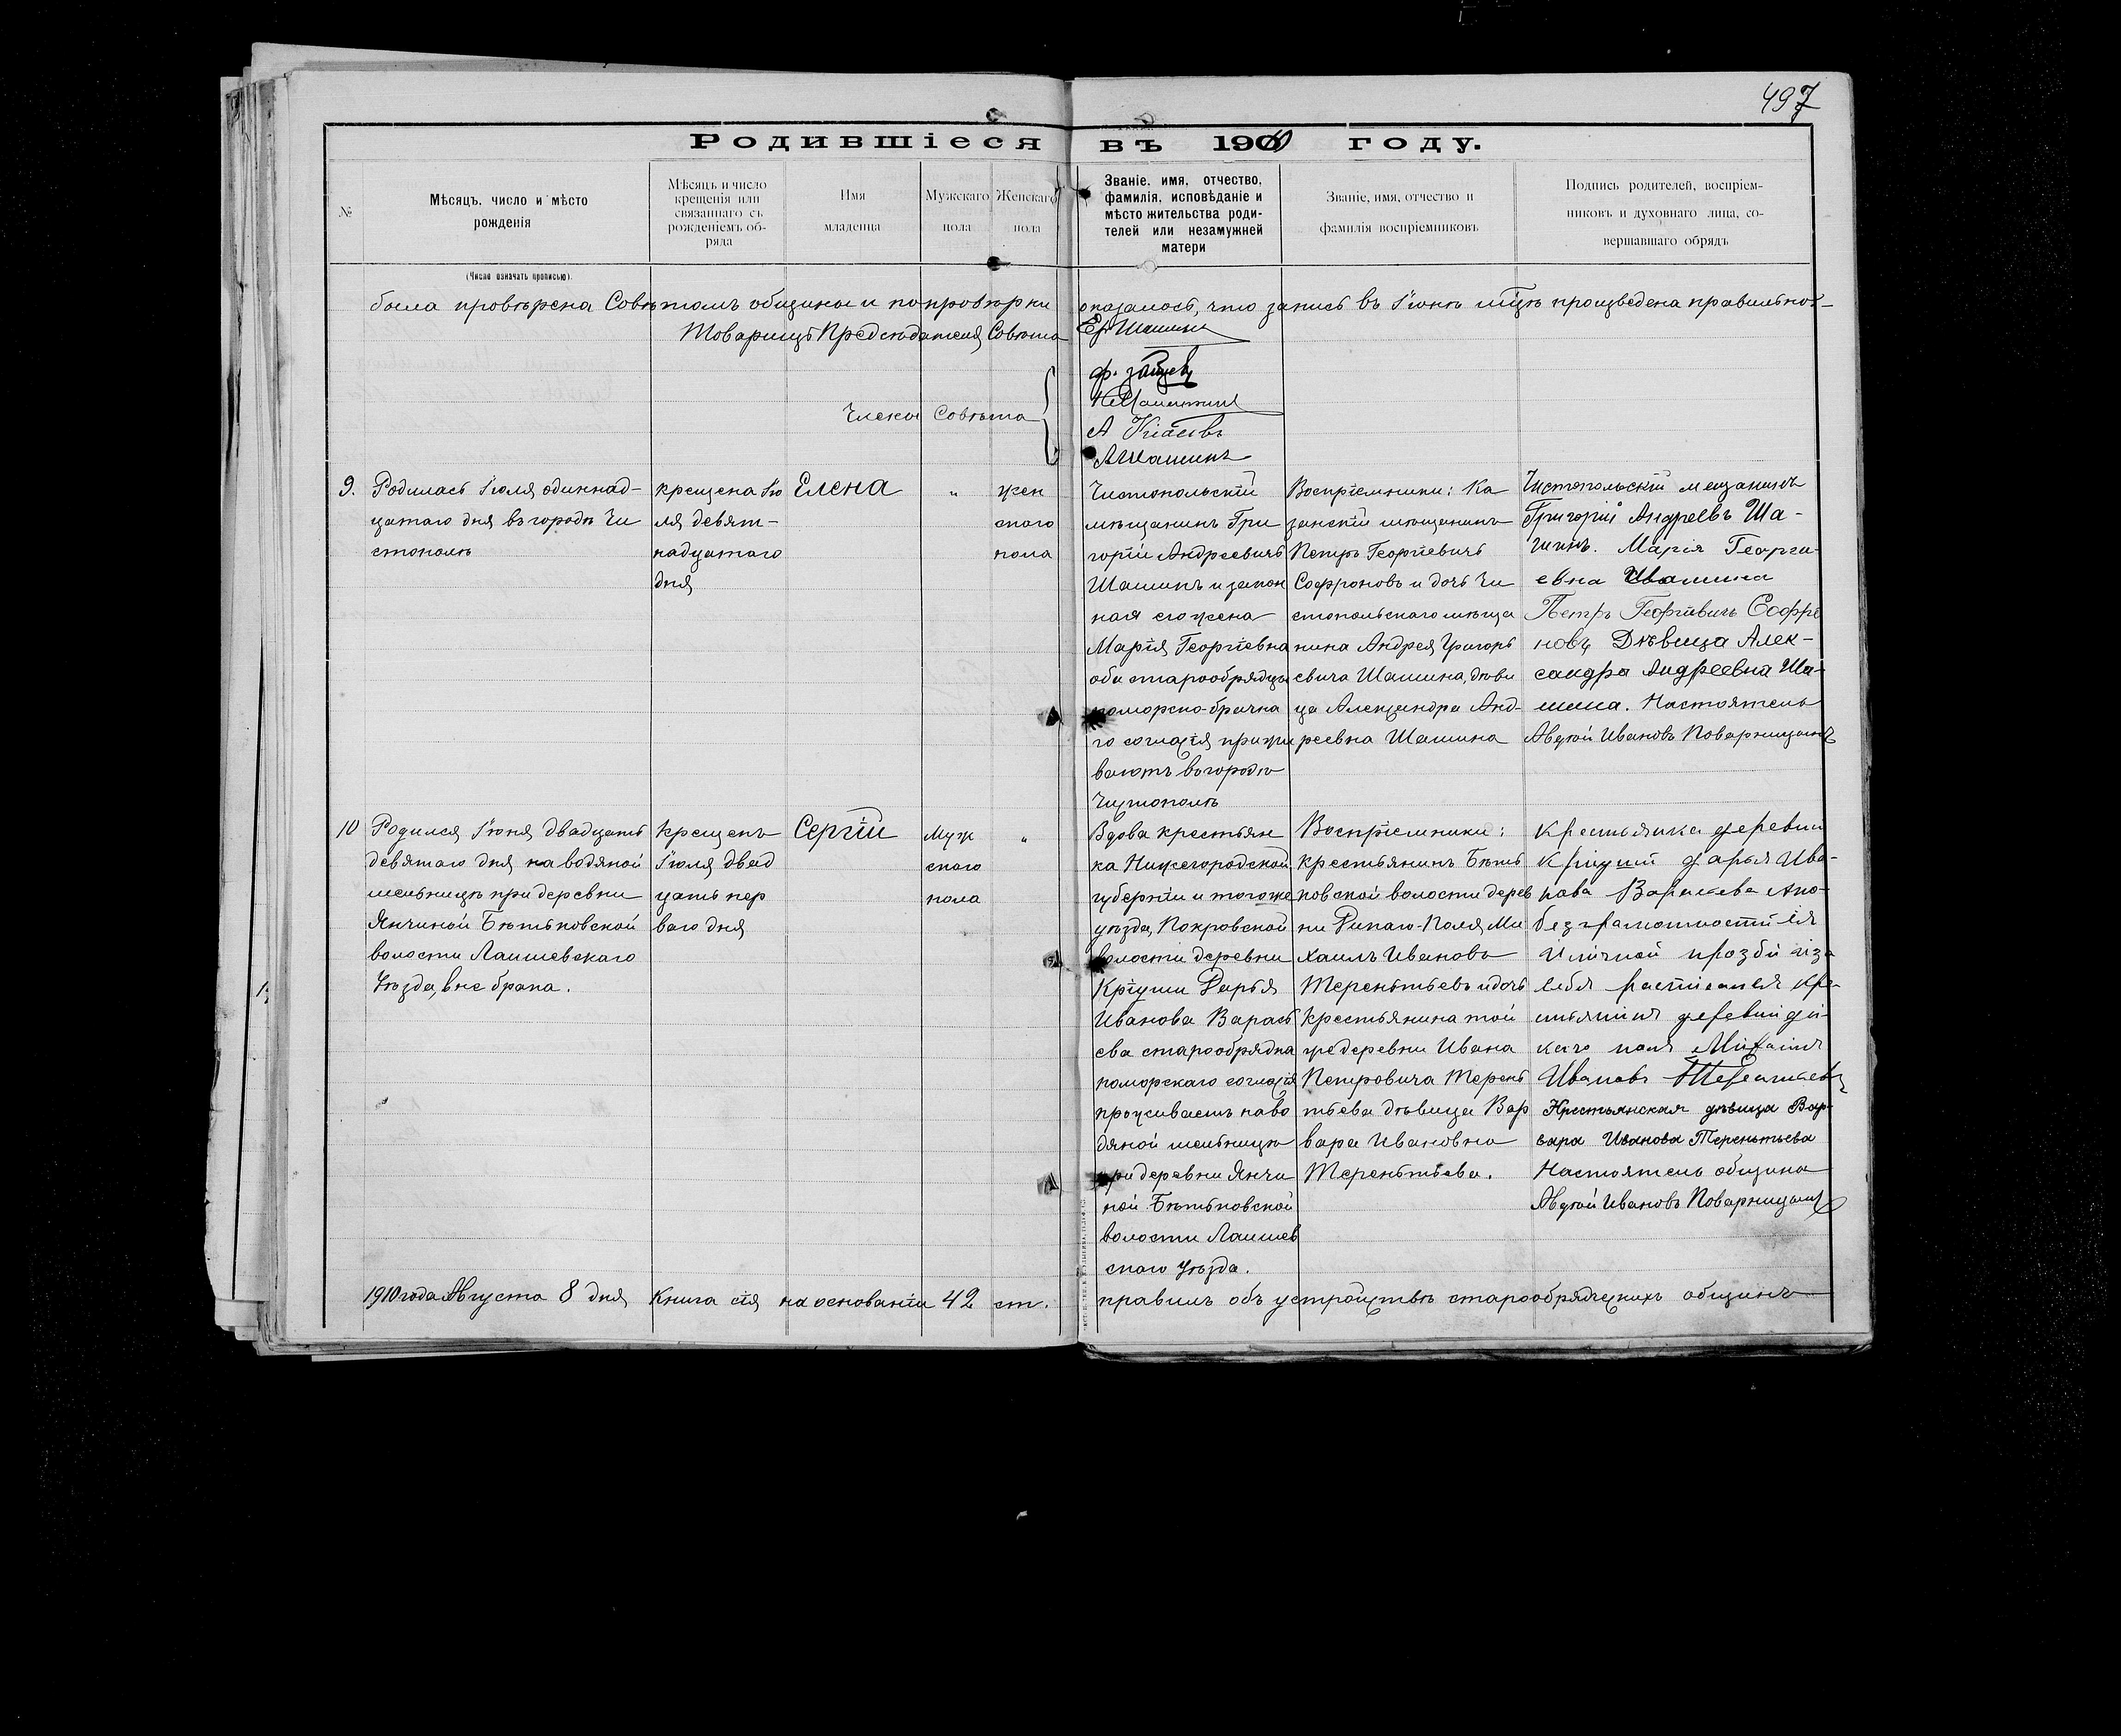 497
Родившіеся въ 1910 году.
№
Мѣсяцъ, число и мѣсто
рожденія
(Число означать прописью).
Мѣсяцъ и число
крещенія или
связаннаго съ
рожденіемъ об-
ряда
Имя
младенца
Мужскаго
пола
Женскаго
пола
Званіе, имя, отчество,
фамилія, исповѣданіе и
мѣсто жительства роди-
телей или незамужней
матери
Званіе, имя, отчество и
фамилія воспріемниковъ
Подпись родителей, воспріем-
никовъ и духовнаго лица, со-
вершавшаго обрядъ
была провѣрена Совѣтомъ общины и по провѣрки оказалось, что запись въ Іюнѣ мѣсяцѣ произведена правильно
Товарищъ Предсѣдателя Совѣта Шашинъ
Члены Совѣта
Ф. Зайцевъ
А Кіаевъ
А Шашинъ
9.
Родилась Іюля одиннад-
цатаго дня въ городѣ Чи
стополѣ
крещена Ію
ля девят-
надцатаго
дня
Елена
"
жен
скаго
пола
Чистопольскій
мѣщанинъ Гри
горій Андреевичъ
Шашинъ и закон
ная его жена
Марія Георгіевна
оби старообрядцы
поморско-брачна
го согласія прожи
ваютъ въ городѣ
Чистополѣ
Воспріемники: Ка
занскій мѣщанинъ
Петръ Георгіевичъ
Софроновъ и дочь Чи
стопольскаго мѣща
нина Андрея Григорь
евича Шашина, дѣви
ца Александра Анд-
реевна Шашина
Чистопольскій мещанинъ
Григорій Андреевъ Ша-
шинъ. Марія Георги-
евна Шашина
Петръ Георгіевичъ Софро
новъ Дѣвица Алек-
сандра Андреевна Ша-
шина. Настоятель
Авдѣй Ивановъ Поварницынъ
10
Родился Іюня двадцать
девятаго дня на водяной
мельницѣ при деревни
Янчиной Бѣтьковской
волости Лаишевскаго
Уѣзда, вне брака.
крещенъ
Іюля двад
цать пер
ваго дня
Сергій
Муж
скаго
пола
"
Вдова крестьян
ка Нижегородской
губерніи и того же
уѣзда, Покровской
волости деревни
Кріуши Дарья
Иванова Варась
ева старообрядка
поморскаго согласія
проживаетъ на во
дяной мельницѣ
при деревни Янчи
ной Бѣтьковской
волости Лаишев
скаго Уѣзда.
Воспріемники:
крестьянинъ Бѣть
ковской волости дерев
ни Дикаго-Поля Ми
хаилъ Ивановъ
Терентьевъ и дочь
крестьянина той
же деревни Ивана
Петровича Терент
тьева дѣвица Вар
вара Ивановна
Терентьева.
крестьянка деревни
Кріуши Дарья Ива-
нова Варасева апо-
безграмотности ія
и личной прозби иза
себя росписался кре
стьянин деревни ди
каго поля Михаилъ
Ивановъ Терентьевъ
Крестьянская дѣвица Вар-
вара Иванова Терентьева
Настоятель общины
Авдѣй Ивановъ Поварницынъ
1910 года Августа 8 дня Книга сія на основаніи 42 ст. правилъ объ устройствѣ старообрядческихъ общинъ